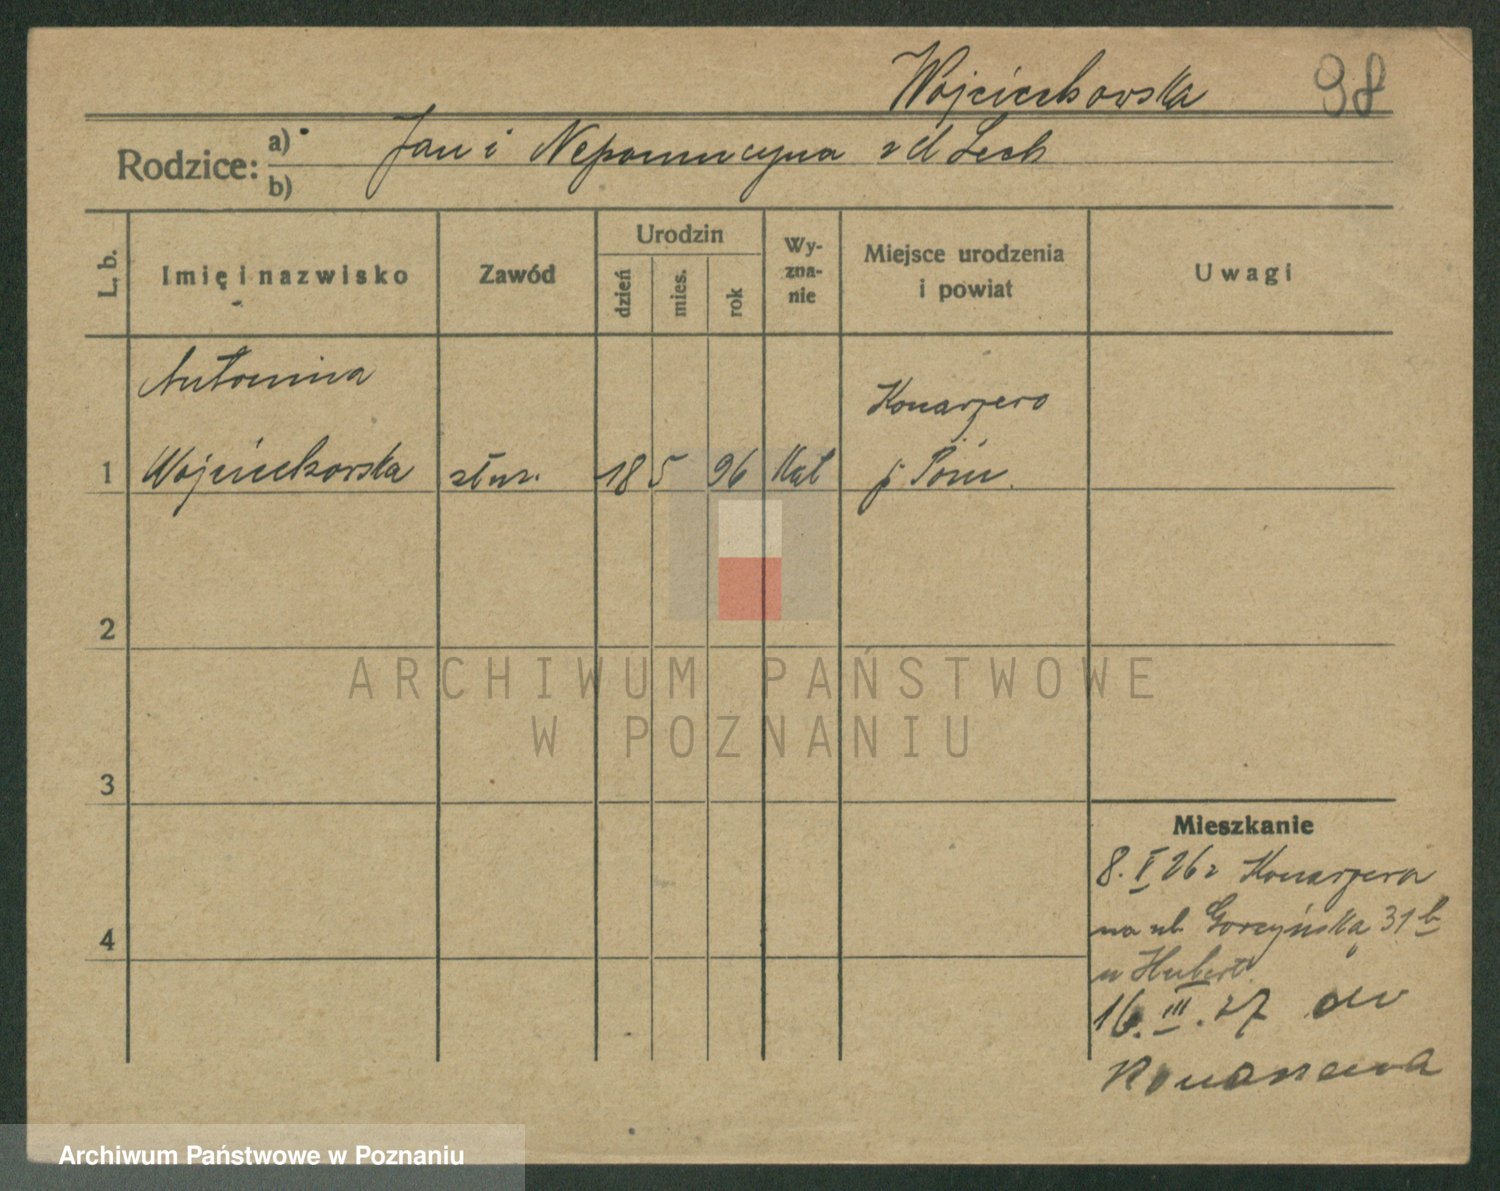 Wojciechowska 98
Rodzice: a) Jan i Nepomucyna z d Lech
b)
L. b.
Imię i nazwisko
Zawód
Urodzin
dzień
mies.
rok
Wy-
zna-
nie
Miejsce urodzenia
i powiat
Uwagi
Antonina
Wojciechowska
1
służ.
18 5 96
Kat
Konarzewo
p. Pozn.
2
3
4
ARCHIWUM PAŃSTWOWE
W POZNANIU
Mieszkanie
8. V 26 z Konarzewa
na ul. Gorczyńską 31 b
u Hubert
16. III. 27 do
Konarzewa
Archiwum Państwowe w Poznaniu